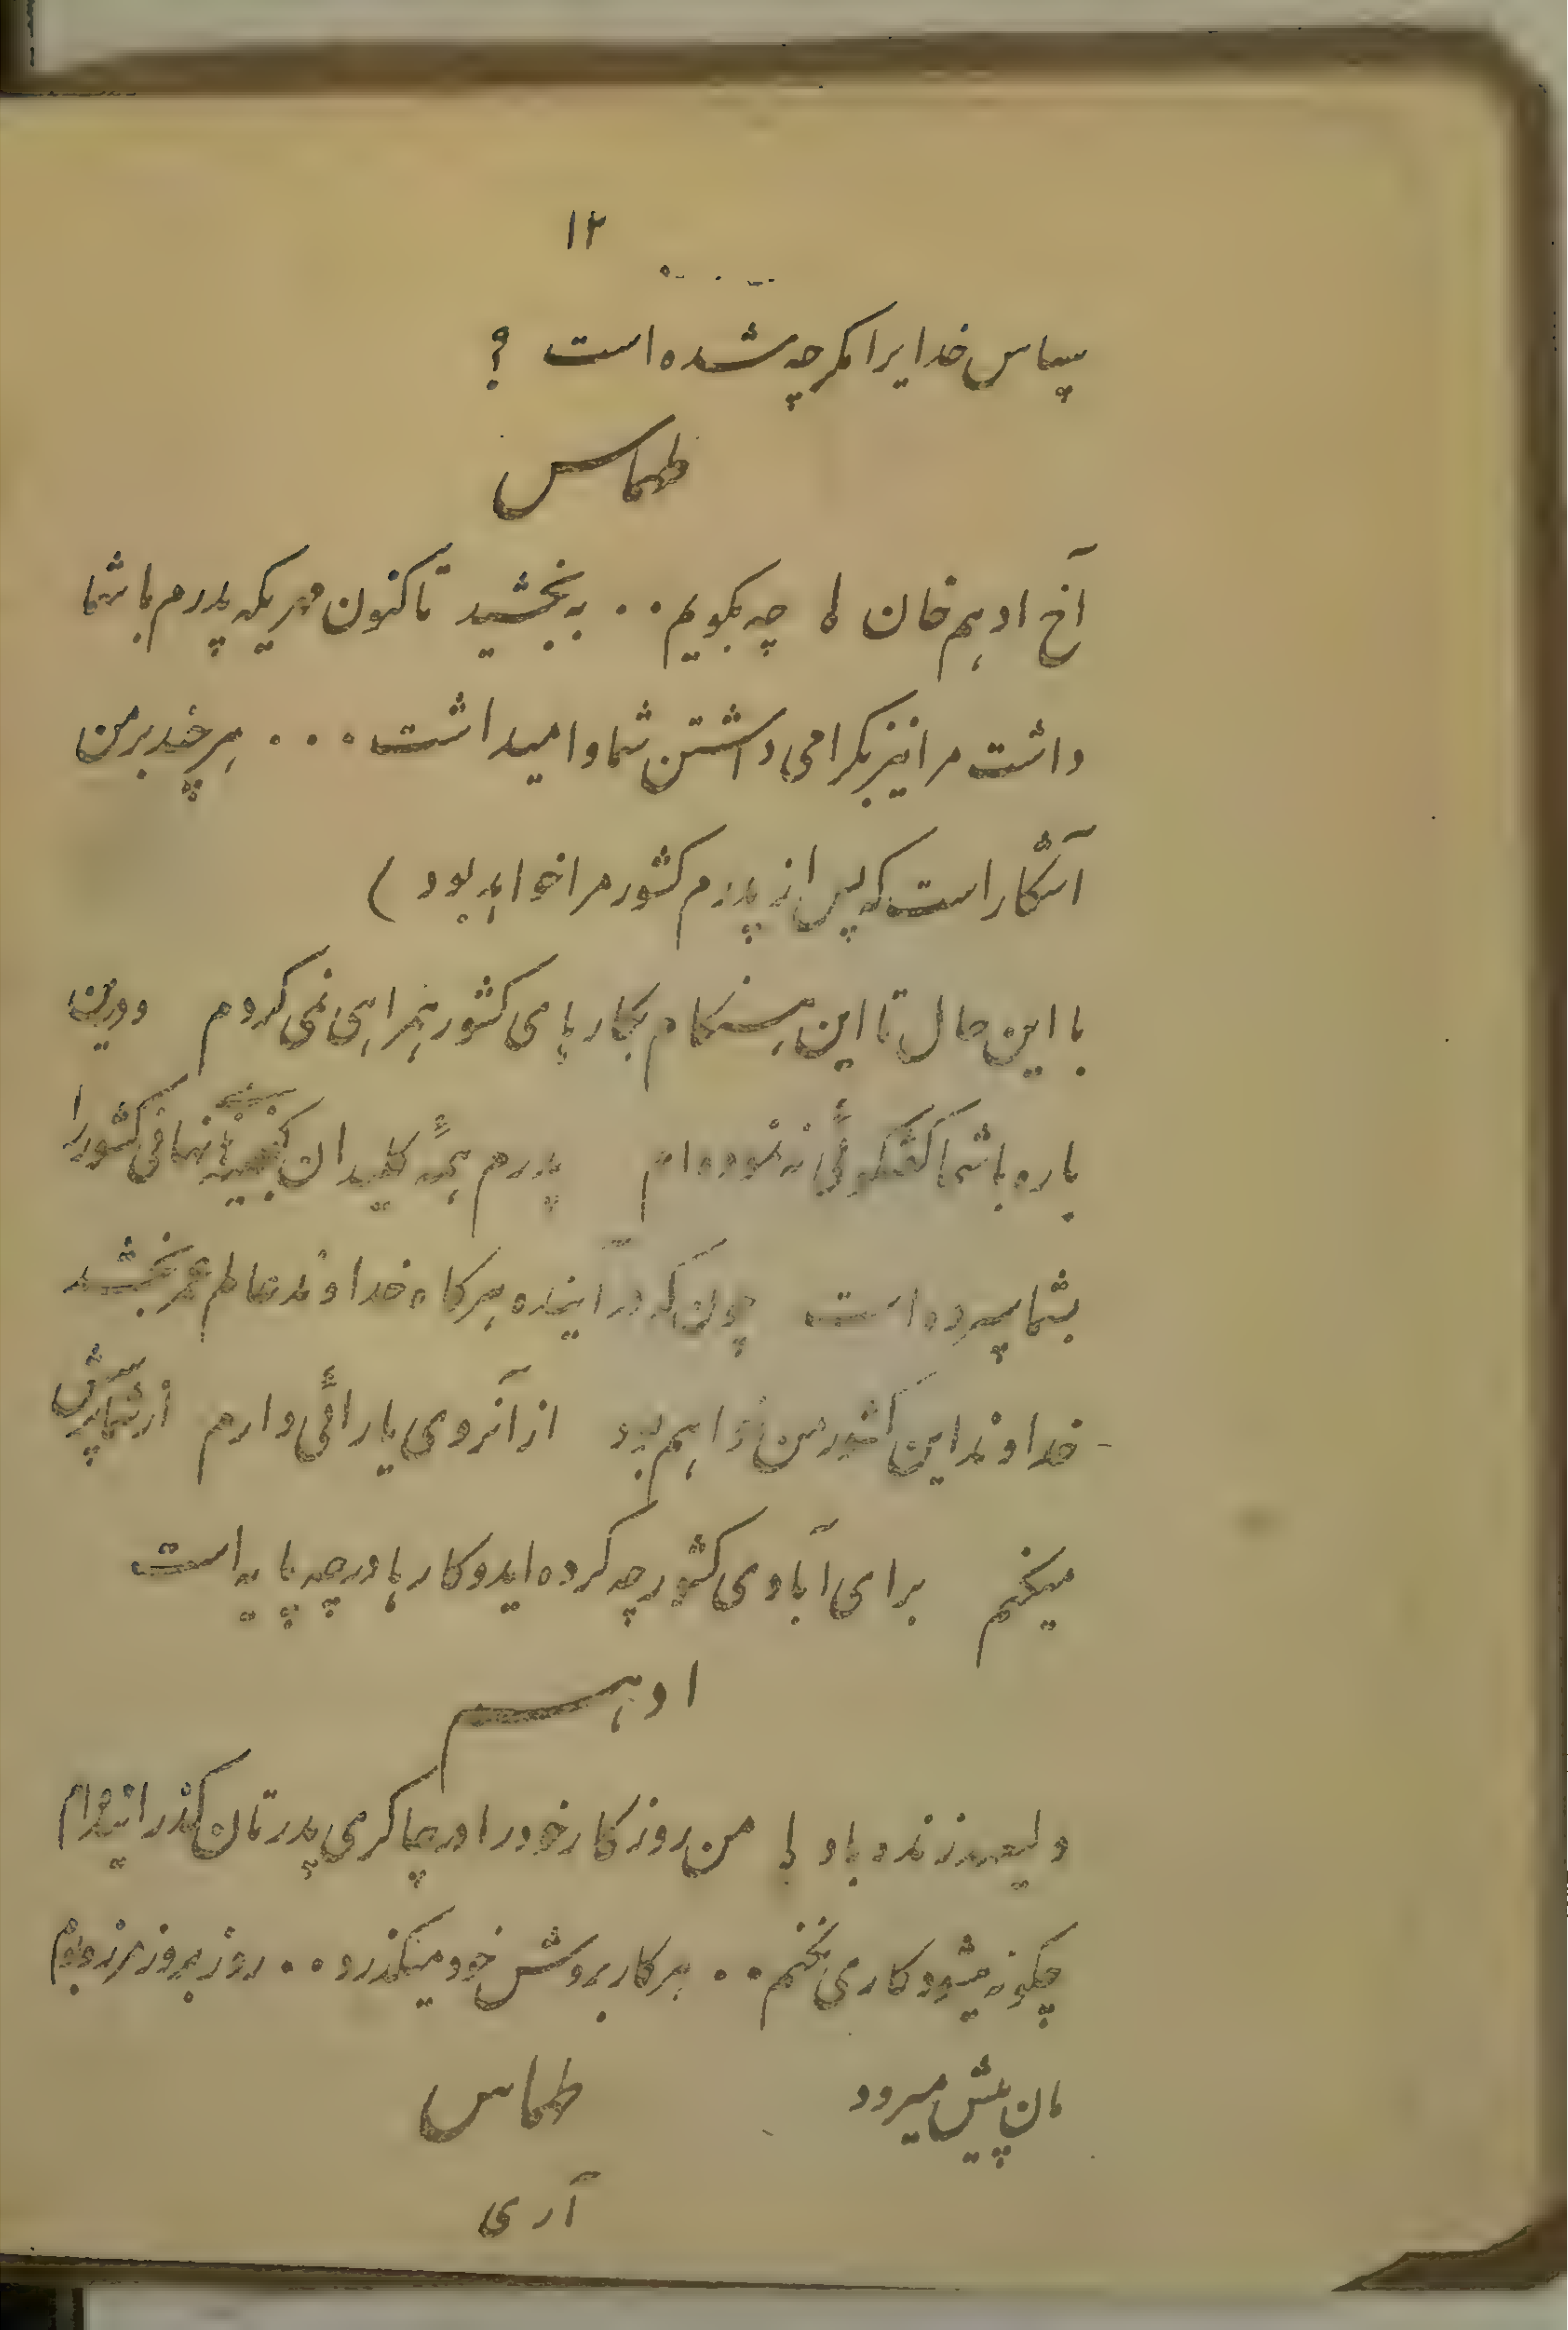 ۱۲
سپاس خدایرا مکر چه شده است ؟
طهماس
آخ ادهم خان ! چه بکویم . . به بخشید تاکنون مهریکه پدرم با شما
داشت مرا نیز بکرامی داشتن شما وامیداشت . . . هرچند بر من
آشکار است که پس از پدرم کشور مرا خواهد بود )
با این حال تا این هنکام بکارهای کشور همراهی نمی کردم ودرین
باره با شما کفتکوئی نه نموده ام پدرم همهٔ کلیدان کنجینهٔ نهانی کشور را
بشما سپرده است چون که در آینده هرکاه خداوند عالم عمر بخشد
خداوند این کشور من خواهم بود از آنروی یارائی دارم از شما پرسش
میکنم برای آبادی کشور چه کرده اید و کارها در چه پایه است
ادهم
ولیعهد زنده باد ! من روز کار خود را در چاکری پدرتان کذرانیده ام
چکونه میشود کاری نکنم . . هر کار بروش خود میکذرد . . روز بروز مرز و بوم
مان پیش میرود طهماس
آری